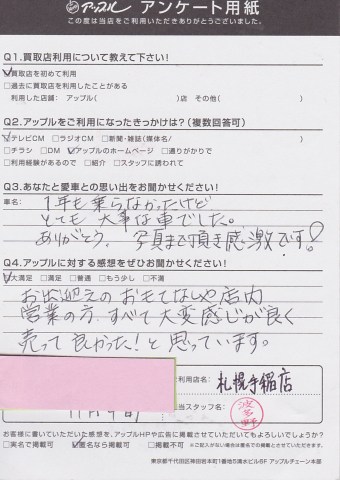 アップル アンケート用紙
この度は当店をご利用いただきありがとうございました。
Q1.買取店利用について教えて下さい!
☑買取店を初めて利用
□過去に買取店を利用したことがある
利用した店舗: アップル( )店 その他( )
Q2.アップルをご利用になったきっかけは?(複数回答可)
☑テレビCM □ラジオCM □新聞・雑誌(媒体名/ )
□チラシ □DM ☑アップルのホームページ □通りがかりで
□利用経験があるので □紹介 □スタッフに誘われて
Q3.あなたと愛車との思い出をお聞かせください!
車名:
1年も乗らなかったけど
とても大事な車でした。
ありがとう。写真まで頂き感激です!
Q4.アップルに対する感想をぜひお聞かせください!
☑大満足 □満足 □普通 □もう少し □不満
お出迎えのおもてなしや店内
営業の方、すべて大変感じが良く
売って良かった!と思っています。
ご利用店名: 札幌手稲店
担当スタッフ名:
波多野
お客様に書いていただいた感想を、アップルHPや広告に掲載させていただいてもよろしいでしょうか?
□実名で掲載可 ☑匿名なら掲載可 □掲載不可
※ご記入がない場合は匿名での掲載とさせていただきます。
東京都千代田区神田岩本町1番地5清水ビル6F アップルチェーン本部